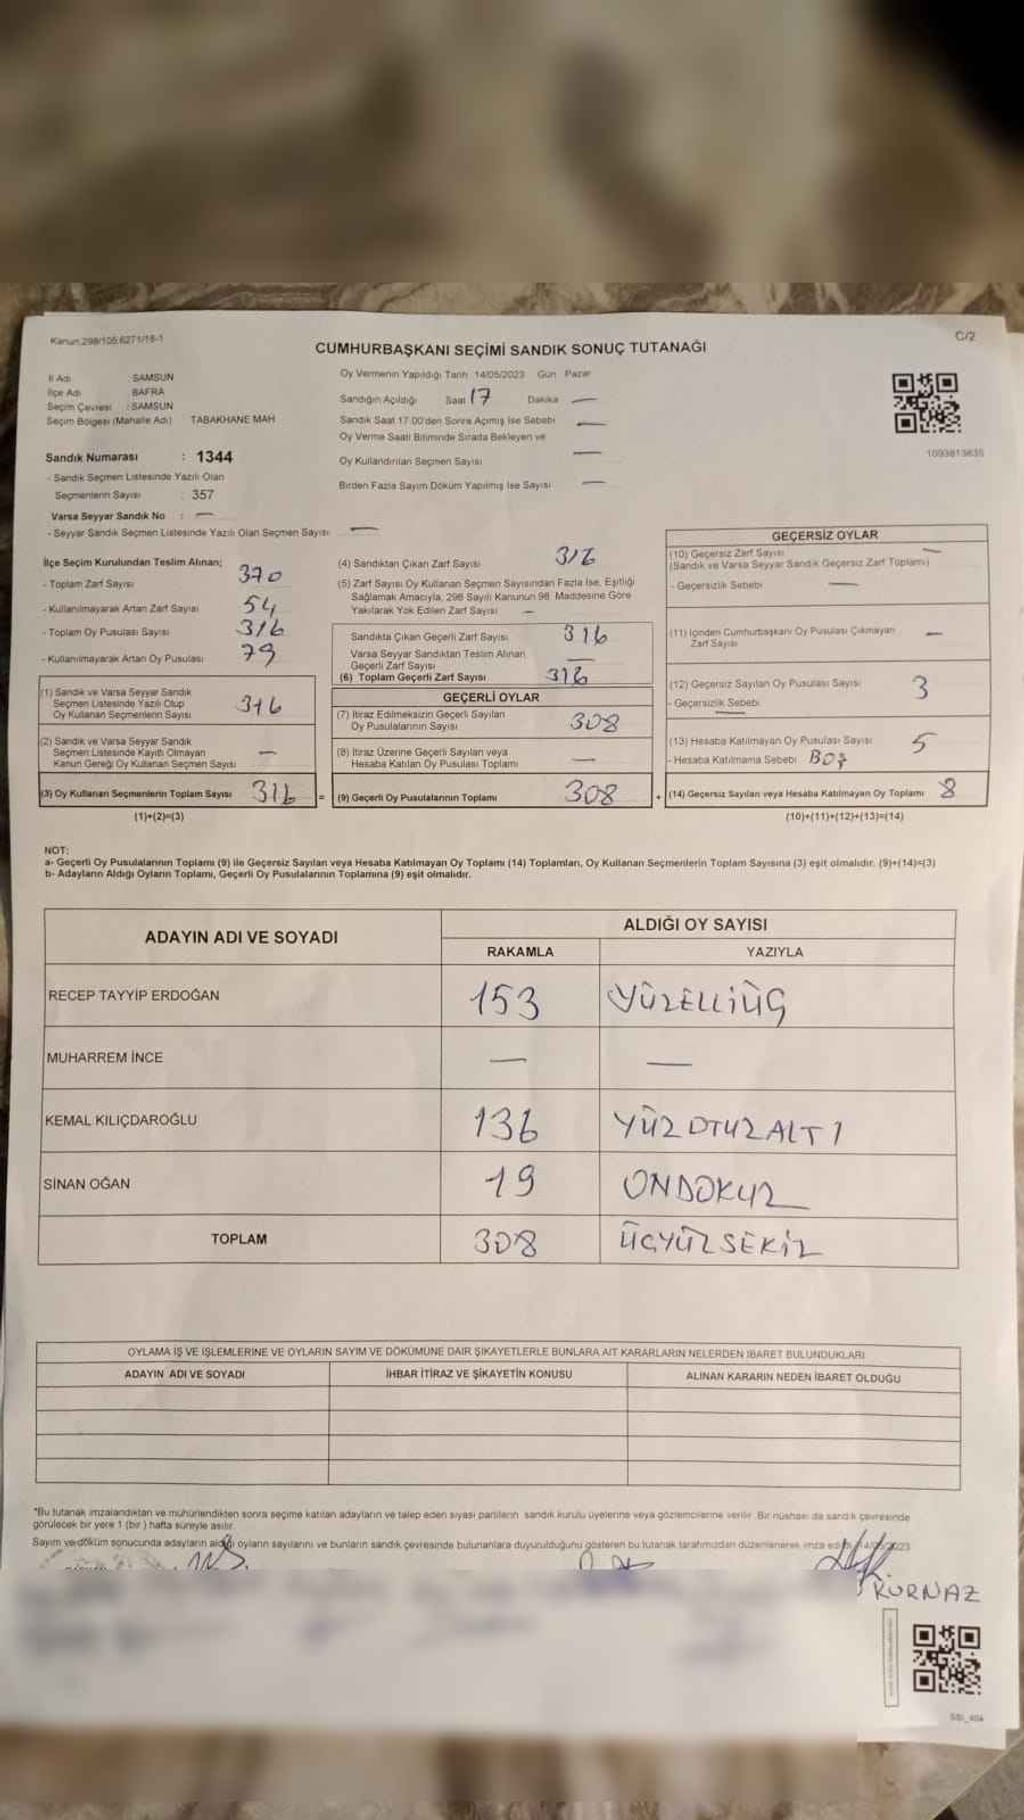 Kanun.298/105.6271/18-1
C/2
CUMHURBAŞKANI SEÇİMİ SANDIK SONUÇ TUTANAĞI
İl Adı : SAMSUN
İlçe Adı : BAFRA
Seçim Çevresi : SAMSUN
Seçim Bölgesi (Mahalle Adı) TABAKHANE MAH
Sandık Numarası : 1344
- Sandık Seçmen Listesinde Yazılı Olan
Seçmenlerin Sayısı : 357
Varsa Seyyar Sandık No : —
- Seyyar Sandık Seçmen Listesinde Yazılı Olan Seçmen Sayısı —
Oy Vermenin Yapıldığı Tarih 14/05/2023 Gün Pazar
Sandığın Açıldığı Saat 17 Dakika —
Sandık Saat 17.00'den Sonra Açılmış İse Sebebi —
Oy Verme Saati Bitiminde Sırada Bekleyen ve
Oy Kullandırılan Seçmen Sayısı —
Birden Fazla Sayım Döküm Yapılmış İse Sayısı —
1093813635
İlçe Seçim Kurulundan Teslim Alınan;
- Toplam Zarf Sayısı 370
- Kullanılmayarak Artan Zarf Sayısı 54
- Toplam Oy Pusulası Sayısı 316
- Kullanılmayarak Artan Oy Pusulası 79
(1) Sandık ve Varsa Seyyar Sandık
Seçmen Listesinde Yazılı Olup
Oy Kullanan Seçmenlerin Sayısı 316
(2) Sandık ve Varsa Seyyar Sandık
Seçmen Listesinde Kayıtlı Olmayan
Kanun Gereği Oy Kullanan Seçmen Sayısı —
(3) Oy Kullanan Seçmenlerin Toplam Sayısı 316 =
(1)+(2)=(3)
(4) Sandıktan Çıkan Zarf Sayısı 316
(5) Zarf Sayısı Oy Kullanan Seçmen Sayısından Fazla İse, Eşitliği
Sağlamak Amacıyla, 298 Sayılı Kanunun 98. Maddesine Göre
Yakılarak Yok Edilen Zarf Sayısı —
Sandıkta Çıkan Geçerli Zarf Sayısı 316
Varsa Seyyar Sandıktan Teslim Alınan
Geçerli Zarf Sayısı —
(6) Toplam Geçerli Zarf Sayısı 316
GEÇERLİ OYLAR
(7) İtiraz Edilmeksizin Geçerli Sayılan
Oy Pusulalarının Sayısı 308
(8) İtiraz Üzerine Geçerli Sayılan veya
Hesaba Katılan Oy Pusulası Toplamı —
(9) Geçerli Oy Pusulalarının Toplamı 308 +
GEÇERSİZ OYLAR
(10) Geçersiz Zarf Sayısı —
(Sandık ve Varsa Seyyar Sandık Geçersiz Zarf Toplamı)
- Geçersizlik Sebebi —
(11) İçinden Cumhurbaşkanı Oy Pusulası Çıkmayan
Zarf Sayısı —
(12) Geçersiz Sayılan Oy Pusulası Sayısı 3
- Geçersizlik Sebebi —
(13) Hesaba Katılmayan Oy Pusulası Sayısı 5
- Hesaba Katılmama Sebebi BOŞ
(14) Geçersiz Sayılan veya Hesaba Katılmayan Oy Toplamı 8
(10)+(11)+(12)+(13)=(14)
NOT:
a- Geçerli Oy Pusulalarının Toplamı (9) ile Geçersiz Sayılan veya Hesaba Katılmayan Oy Toplamı (14) Toplamları, Oy Kullanan Seçmenlerin Toplam Sayısına (3) eşit olmalıdır. (9)+(14)=(3)
b- Adayların Aldığı Oyların Toplamı, Geçerli Oy Pusulalarının Toplamına (9) eşit olmalıdır.
ADAYIN ADI VE SOYADI ALDIĞI OY SAYISI
RAKAMLA YAZIYLA
RECEP TAYYİP ERDOĞAN 153 YÜZELLİÜÇ
MUHARREM İNCE — —
KEMAL KILIÇDAROĞLU 136 YÜZ OTUZ ALTI
SİNAN OĞAN 19 ONDOKUZ
TOPLAM 308 ÜÇYÜZ SEKİZ
OYLAMA İŞ VE İŞLEMLERİNE VE OYLARIN SAYIM VE DÖKÜMÜNE DAİR ŞİKAYETLERLE BUNLARA AİT KARARLARIN NELERDEN İBARET BULUNDUKLARI
ADAYIN ADI VE SOYADI İHBAR İTİRAZ VE ŞİKAYETİN KONUSU ALINAN KARARIN NEDEN İBARET OLDUĞU
*Bu tutanak imzalandıktan ve mühürlendikten sonra seçime katılan adayların ve talep eden siyasi partilerin sandık kurulu üyelerine veya gözlemcilerine verilir. Bir nüshası da sandık çevresinde
görülecek bir yere 1 (bir) hafta süreyle asılır.
Sayım ve döküm sonucunda adayların aldığı oyların sayılarını ve bunların sandık çevresinde bulunanlara duyurulduğunu gösteren bu tutanak tarafımızdan düzenlenerek imza edildi. 14/05/2023
KURNAZ